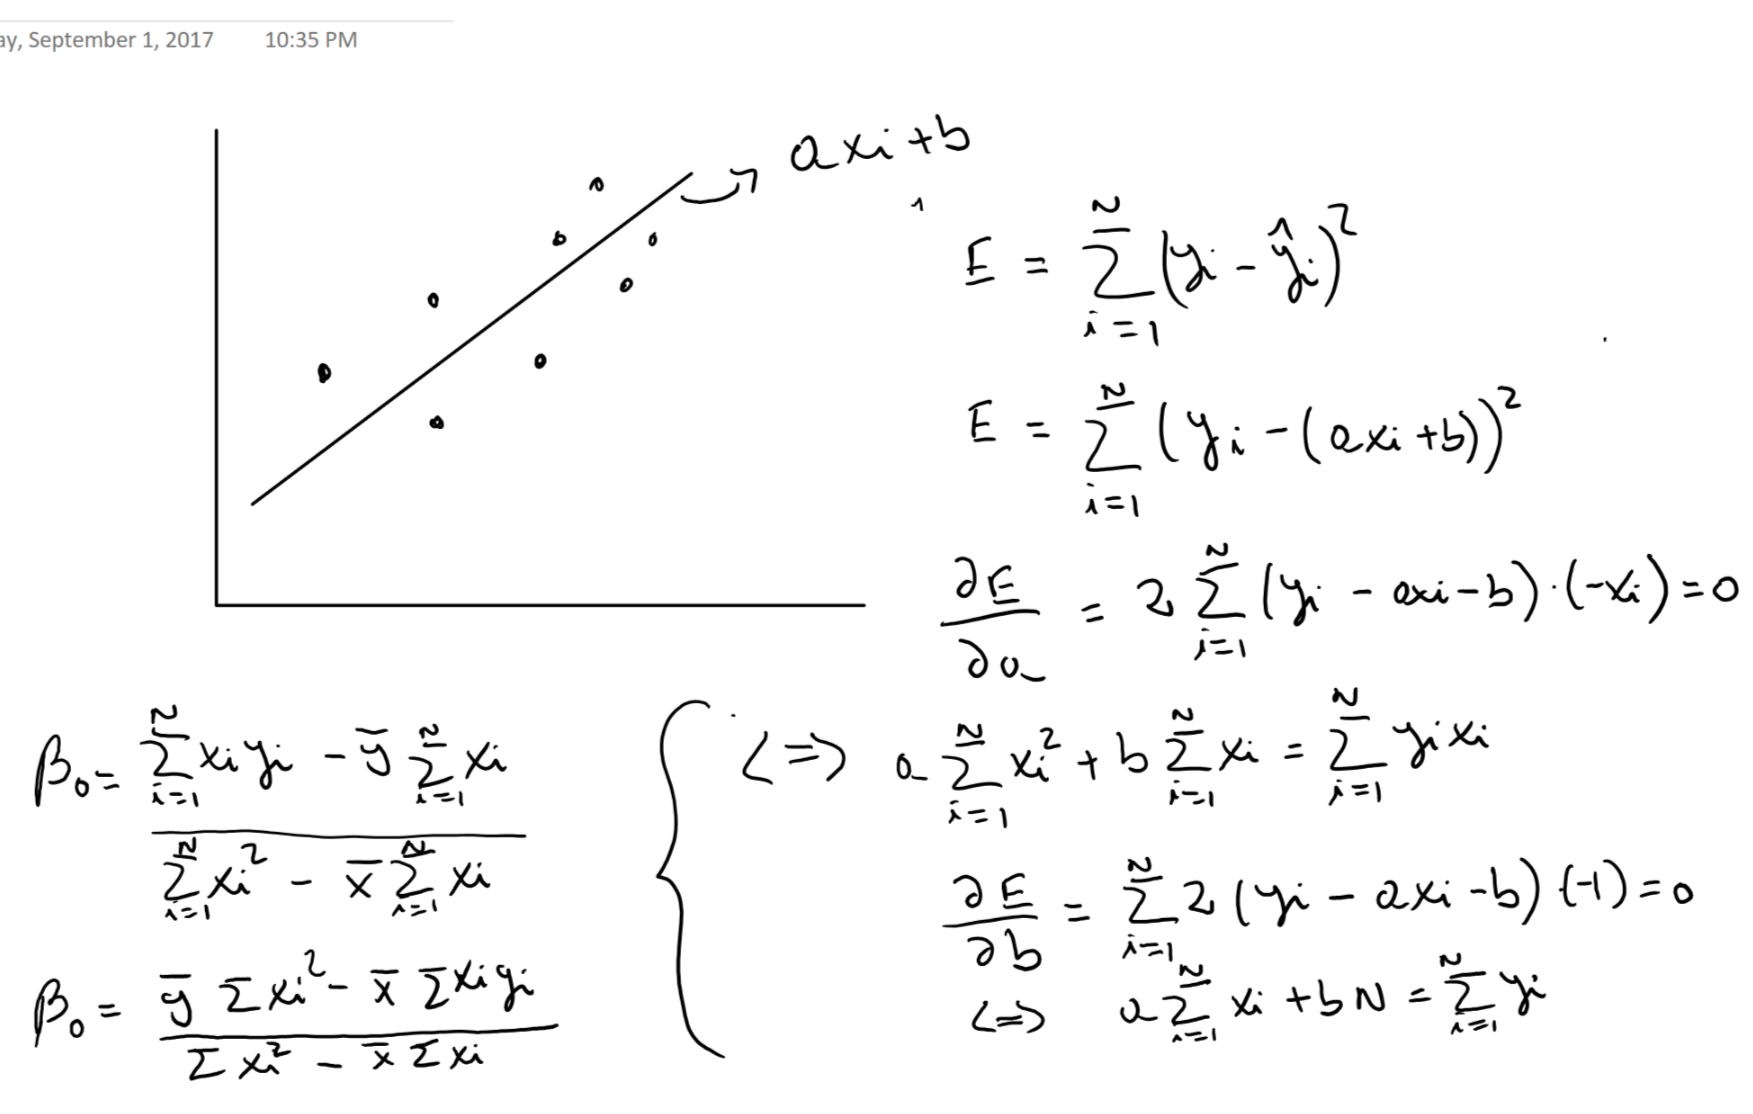 ay, September 1, 2017 10:35 PM
axi+b
E = \sum_{i=1}^{N} (yi - ŷi)^2
E = \sum_{i=1}^{N} (yi - (axi+b))^2
∂E/∂a = 2 \sum_{i=1}^{N} (yi - axi - b)·(-xi) = 0
<=> a \sum_{i=1}^{N} xi^2 + b \sum_{i=1}^{N} xi = \sum_{i=1}^{N} yi xi
∂E/∂b = \sum_{i=1}^{N} 2 (yi - axi - b) (-1) = 0
<=> a \sum_{i=1}^{N} xi + bN = \sum_{i=1}^{N} yi
β0 = (\sum_{i=1}^{N} xi yi - ȳ \sum_{i=1}^{N} xi) / (\sum_{i=1}^{N} xi^2 - x̄ \sum_{i=1}^{N} xi)
β0 = (ȳ Σ xi^2 - x̄ Σ xi yi) / (Σ xi^2 - x̄ Σ xi)